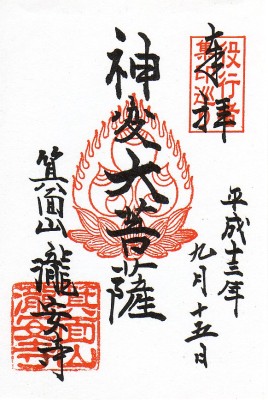 奉拝
役行者
集印巡
平成十三年
九月十五日
神変大菩薩
箕面山瀧安寺
箕面山
瀧安寺